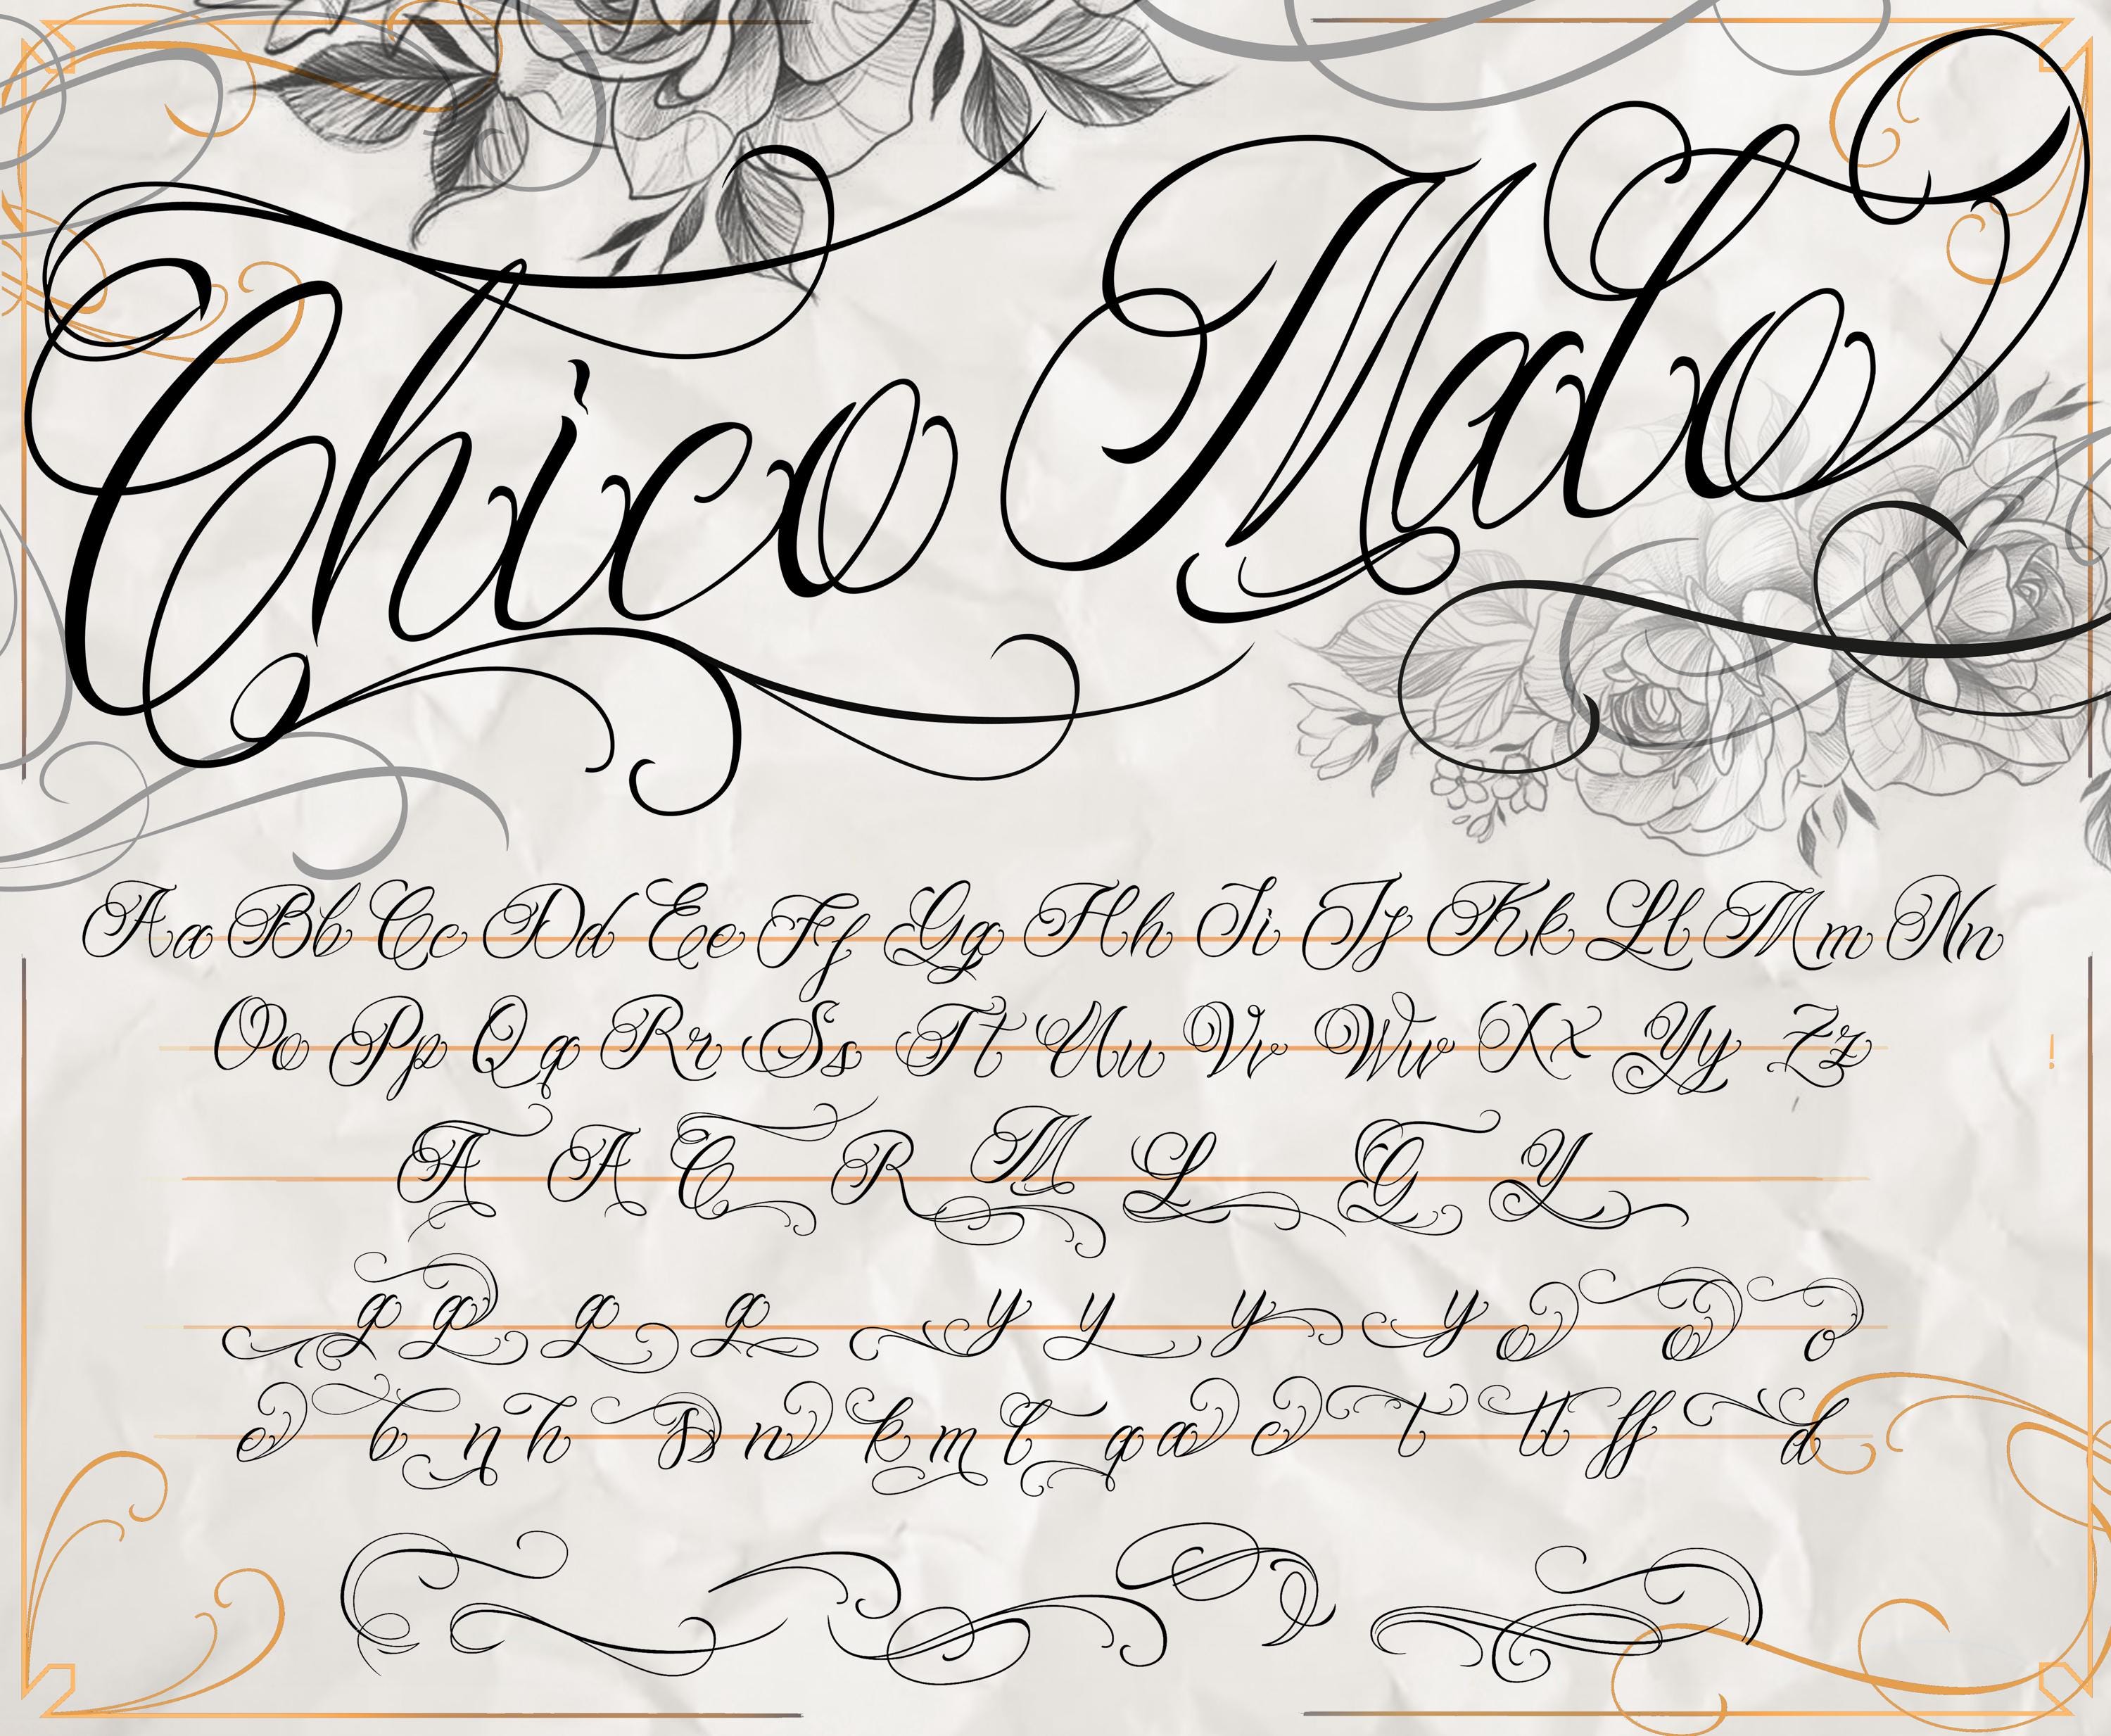 Chico Malo
Aa Bb Cc Dd Ee Ff Gg Hh Ii Jj Kk Ll Mm Nn
Oo Pp Qq Rr Ss Tt Uu Vv Ww Xx Yy Zz !
A A C R M L G Y
g g g g y y y y o o o
e b n h s n k m t a a c t tt ff d